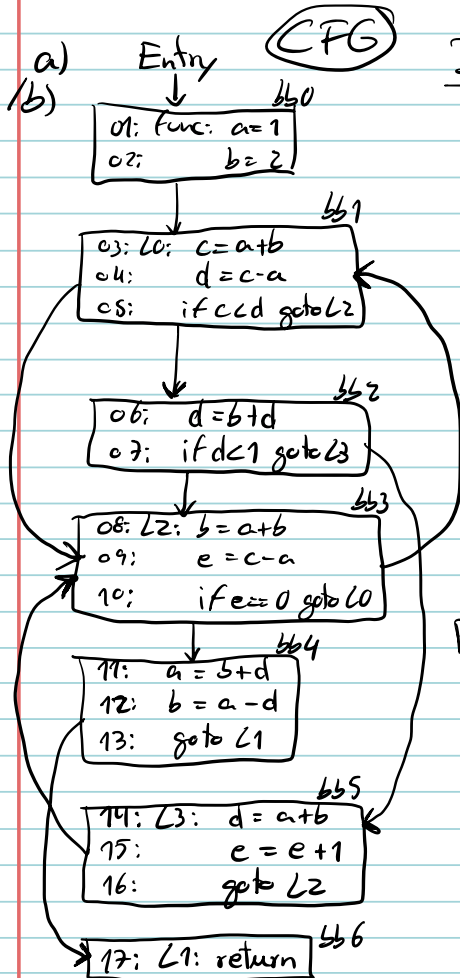 CFG
a)
Entry
/b)
bb0
01: func: a=1
02: b=2
bb1
03: L0: c=a+b
04: d=c-a
05: if c<d goto L2
bb2
06: d=b+d
07: if d<1 goto L3
bb3
08: L2: b=a+b
09: e=c-a
10: if e==0 goto L0
bb4
11: a=b+d
12: b=a-d
13: goto L1
bb5
14: L3: d=a+b
15: e=e+1
16: goto L2
bb6
17: L1: return